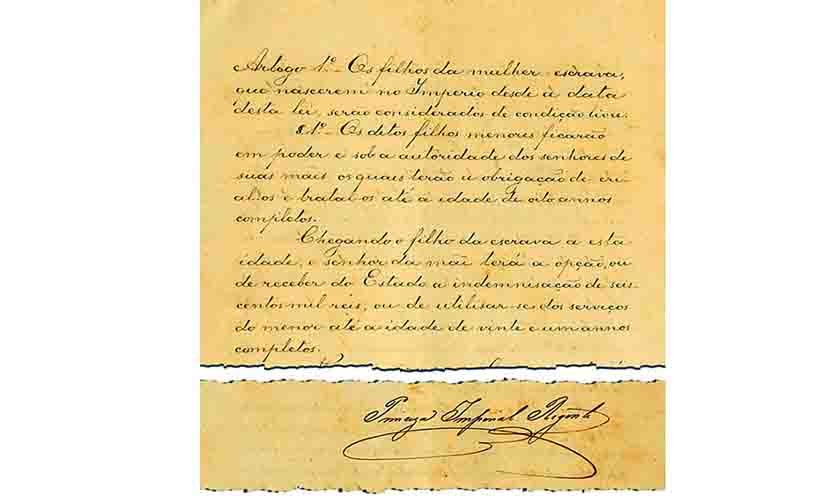 Artogo 1º - Os filhos da mulher escrava,
que nascerem no Imperio desde a data
desta lei, serão considerados de condição livre.
§ 1º - Os ditos filhos menores ficarão
em poder e sob a autoridade dos senhores de
suas mãis os quais terão a obrigação de cri-
al-os e tratal-os até a idade de oito annos
completos.
Chegando o filho da escrava a esta
idade, o senhor da mãi terá a opção, ou
de receber do Estado a indemnisação de seis
centos mil reis, ou de utilisar-se dos serviços
do menor até a idade de vinte e um annos
completos.
Princeza Imperial Regente